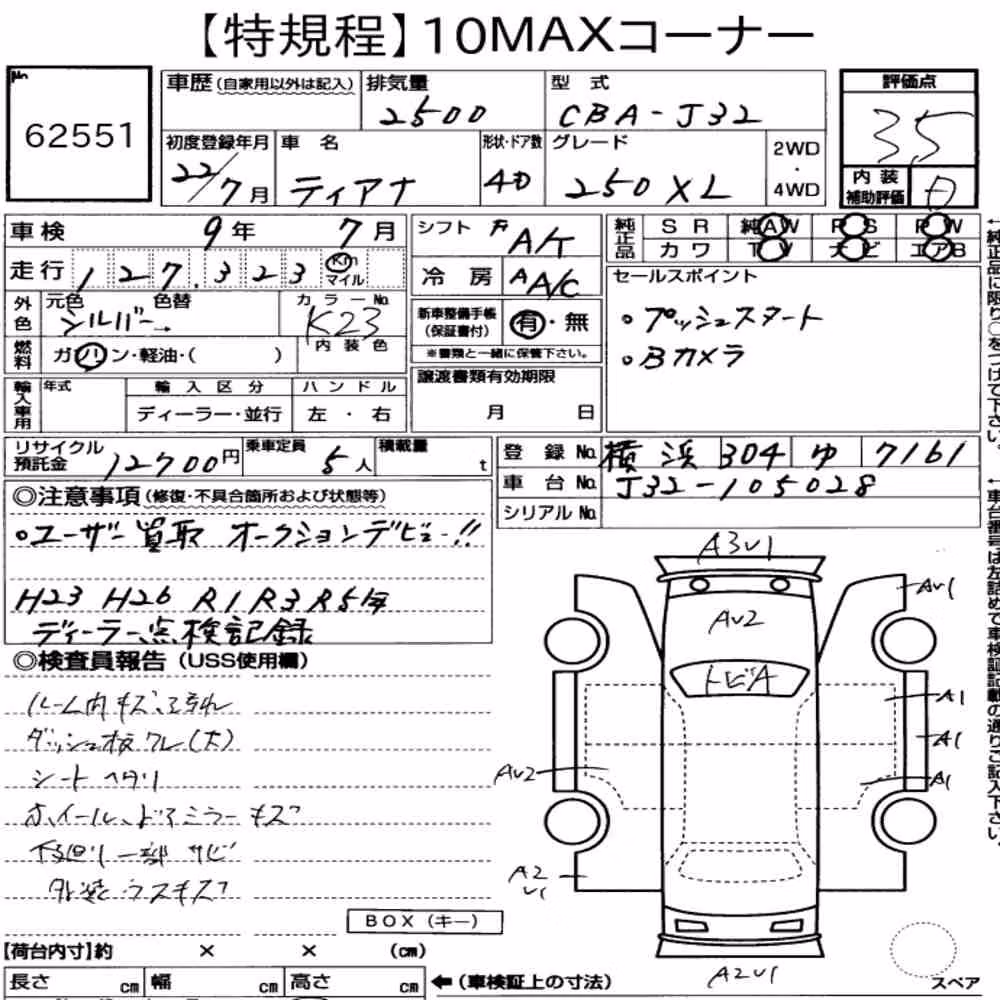 【特規程】10MAXコーナー
No
62551
車歴(自家用以外は記入)
排気量
2500
型式
CBA-J32
評価点
3.5
初度登録年月
22/7月
車名
ティアナ
形状・ドア数
4D
グレード
250XL
2WD
・
4WD
内装
補助評価
D
車検 9年 7月
シフト F A/T
純正品
SR 純AW PS PW
カワ TV ナビ エアB
走行 127.323 Km
マイル
冷房 A A/C
セールスポイント
外色
元色 色替
シルバー→
カラーNo.
K23
新車整備手帳
(保証書付)
有・無
※書類と一緒に保管下さい。
。プッシュスタート
。Bカメラ
燃料
ガソリン・軽油・( )
内装色
輸入車用
年式
輸入区分
ディーラー・並行
ハンドル
左・右
譲渡書類有効期限
月 日
リサイクル
預託金 12700円
乗車定員
5人
積載量
t
登録No. 横浜 304 ゆ 7161
車台No. J32-105028
シリアルNo.
◎注意事項(修復・不具合箇所および状態等)
。ユーザー買取 オークションデビュー!!
H23 H26 R1 R3 R5年
ディーラー点検記録
◎検査員報告(USS使用欄)
ルーム内キズ、汚れ
シートヘタリ
ホイール、ドアミラーキズ
下回り一部サビ
外装ウスキズ
BOX(キー)
A3V1
AV1
AV2
トビA
A1
A1
AV2
A1
A2
V1
A2V1
【荷台内寸】約 × × (cm)
長さ cm 幅 cm 高さ cm
←(車検証上の寸法)
スペア
←純正品に限り○をつけて下さい。
←車台番号は左詰めで車検証記載の通りご記入下さい。